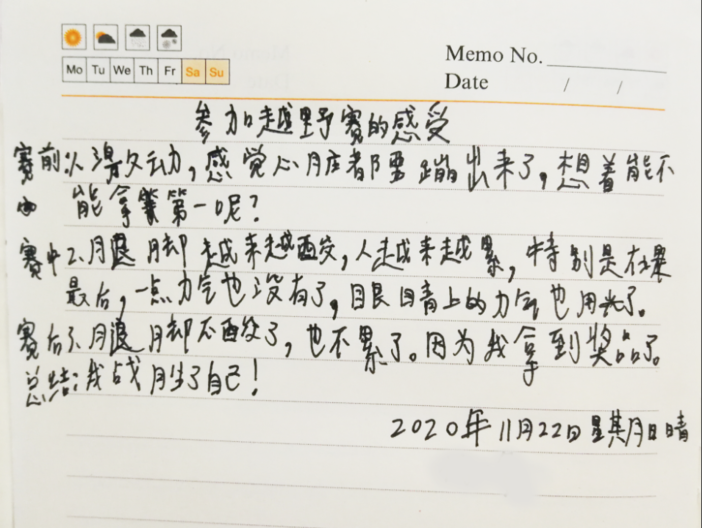 Mo Tu We Th Fr Sa Su
Memo No.
Date / /
参加越野赛的感受
赛前:1、激动,感觉心脏都要蹦出来了,想着能不
能拿第一呢?
赛中:2、腿脚越来越酸,人越来越累,特别是在最
最后,一点力气也没有了,眼睛上的力气也用光了。
赛后:3、腿脚不酸了,也不累了。因为我拿到奖品了。
总结:我战胜了自己!
2020年11月22日星期日晴